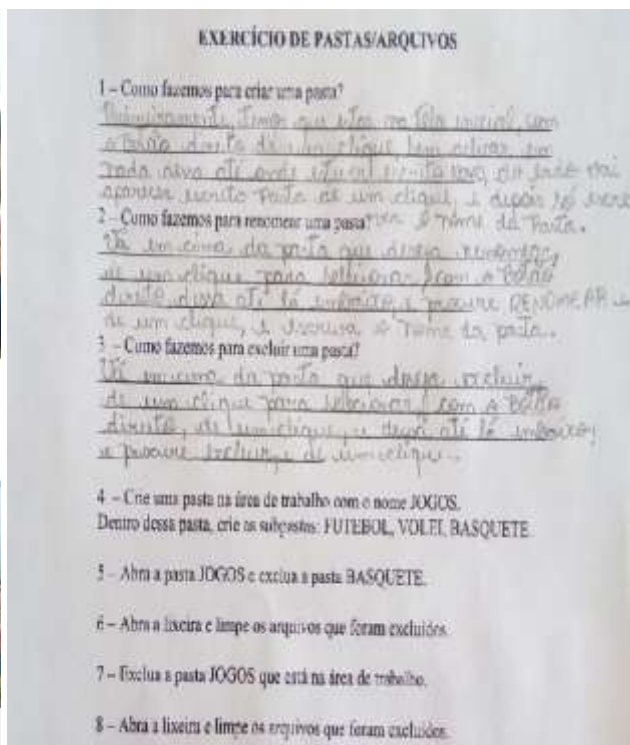 EXERCÍCIO DE PASTAS/ARQUIVOS
1 – Como fazemos para criar uma pasta?
Primeiramente, temos que estar na tela inicial, com
o botão direito de um clique, sem estar em
nada até onde escrito novo, do lado vai
aparecer escrito Pasta de um clique, e depois só
2 – Como fazemos para renomear uma pasta? o nome da Pasta.
Vá em cima da pasta que deseja renomear,
de um clique para selecionar, com o Botão
direito, desça até lá embaixo, e procure RENOMEAR
de um clique, e escreva o nome da pasta.
3 – Como fazemos para excluir uma pasta?
Vá em cima da pasta que deseja excluir,
de um clique para selecionar, com o Botão
direito, de um clique, e desça até lá embaixo,
e procure excluir, e de um clique.
4 – Crie uma pasta na área de trabalho com o nome JOGOS.
Dentro dessa pasta, crie as subpastas: FUTEBOL, VOLEI, BASQUETE.
5 – Abra a pasta JOGOS e exclua a pasta BASQUETE.
6 – Abra a lixeira e limpe os arquivos que foram excluídos.
7 – Exclua a pasta JOGOS que está na área de trabalho.
8 – Abra a lixeira e limpe os arquivos que foram excluídos.